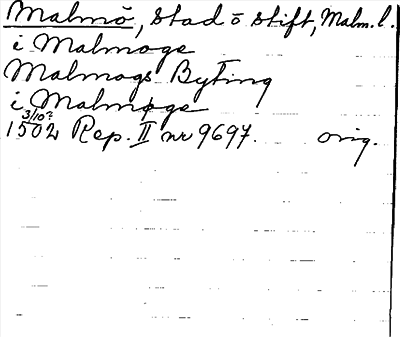 Malmö, stad o stift, Malm. l.
i Malmoge
Malmogs Byting
i Malmøge
3/10?
1502 Rep. II nr 9697. orig.